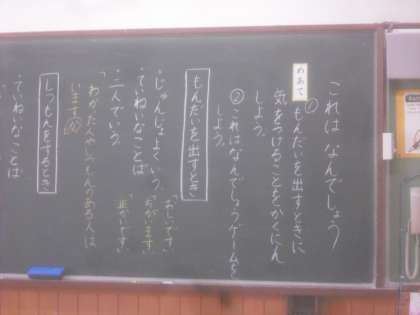 これは なんでしょう
めあて
①もんだいを出すときに
気をつけることをかくにん
しよう。
②これはなんでしょうゲームを
しよう。
もんだいを出すとき
・じゅんじょよくいう。
・ていねいなことば
「おしいです」
「ちがいます」
「正かいです」
・二人でいう。
「わかった人やしつもんのある人は
いますか」
しつもんをするとき
・ていねいなことば